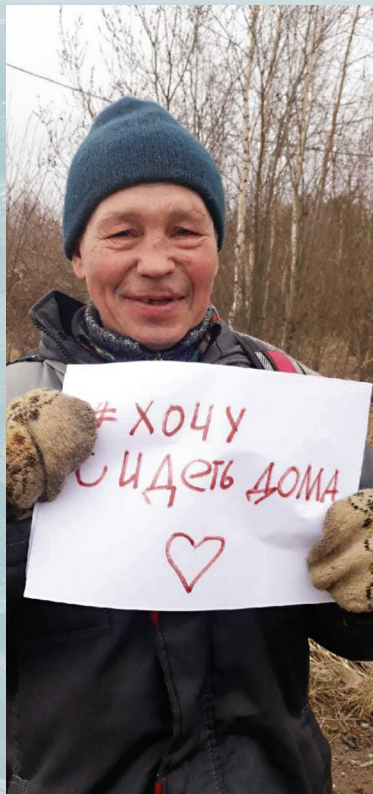 #ХОЧУ
СИДЕТЬ ДОМА